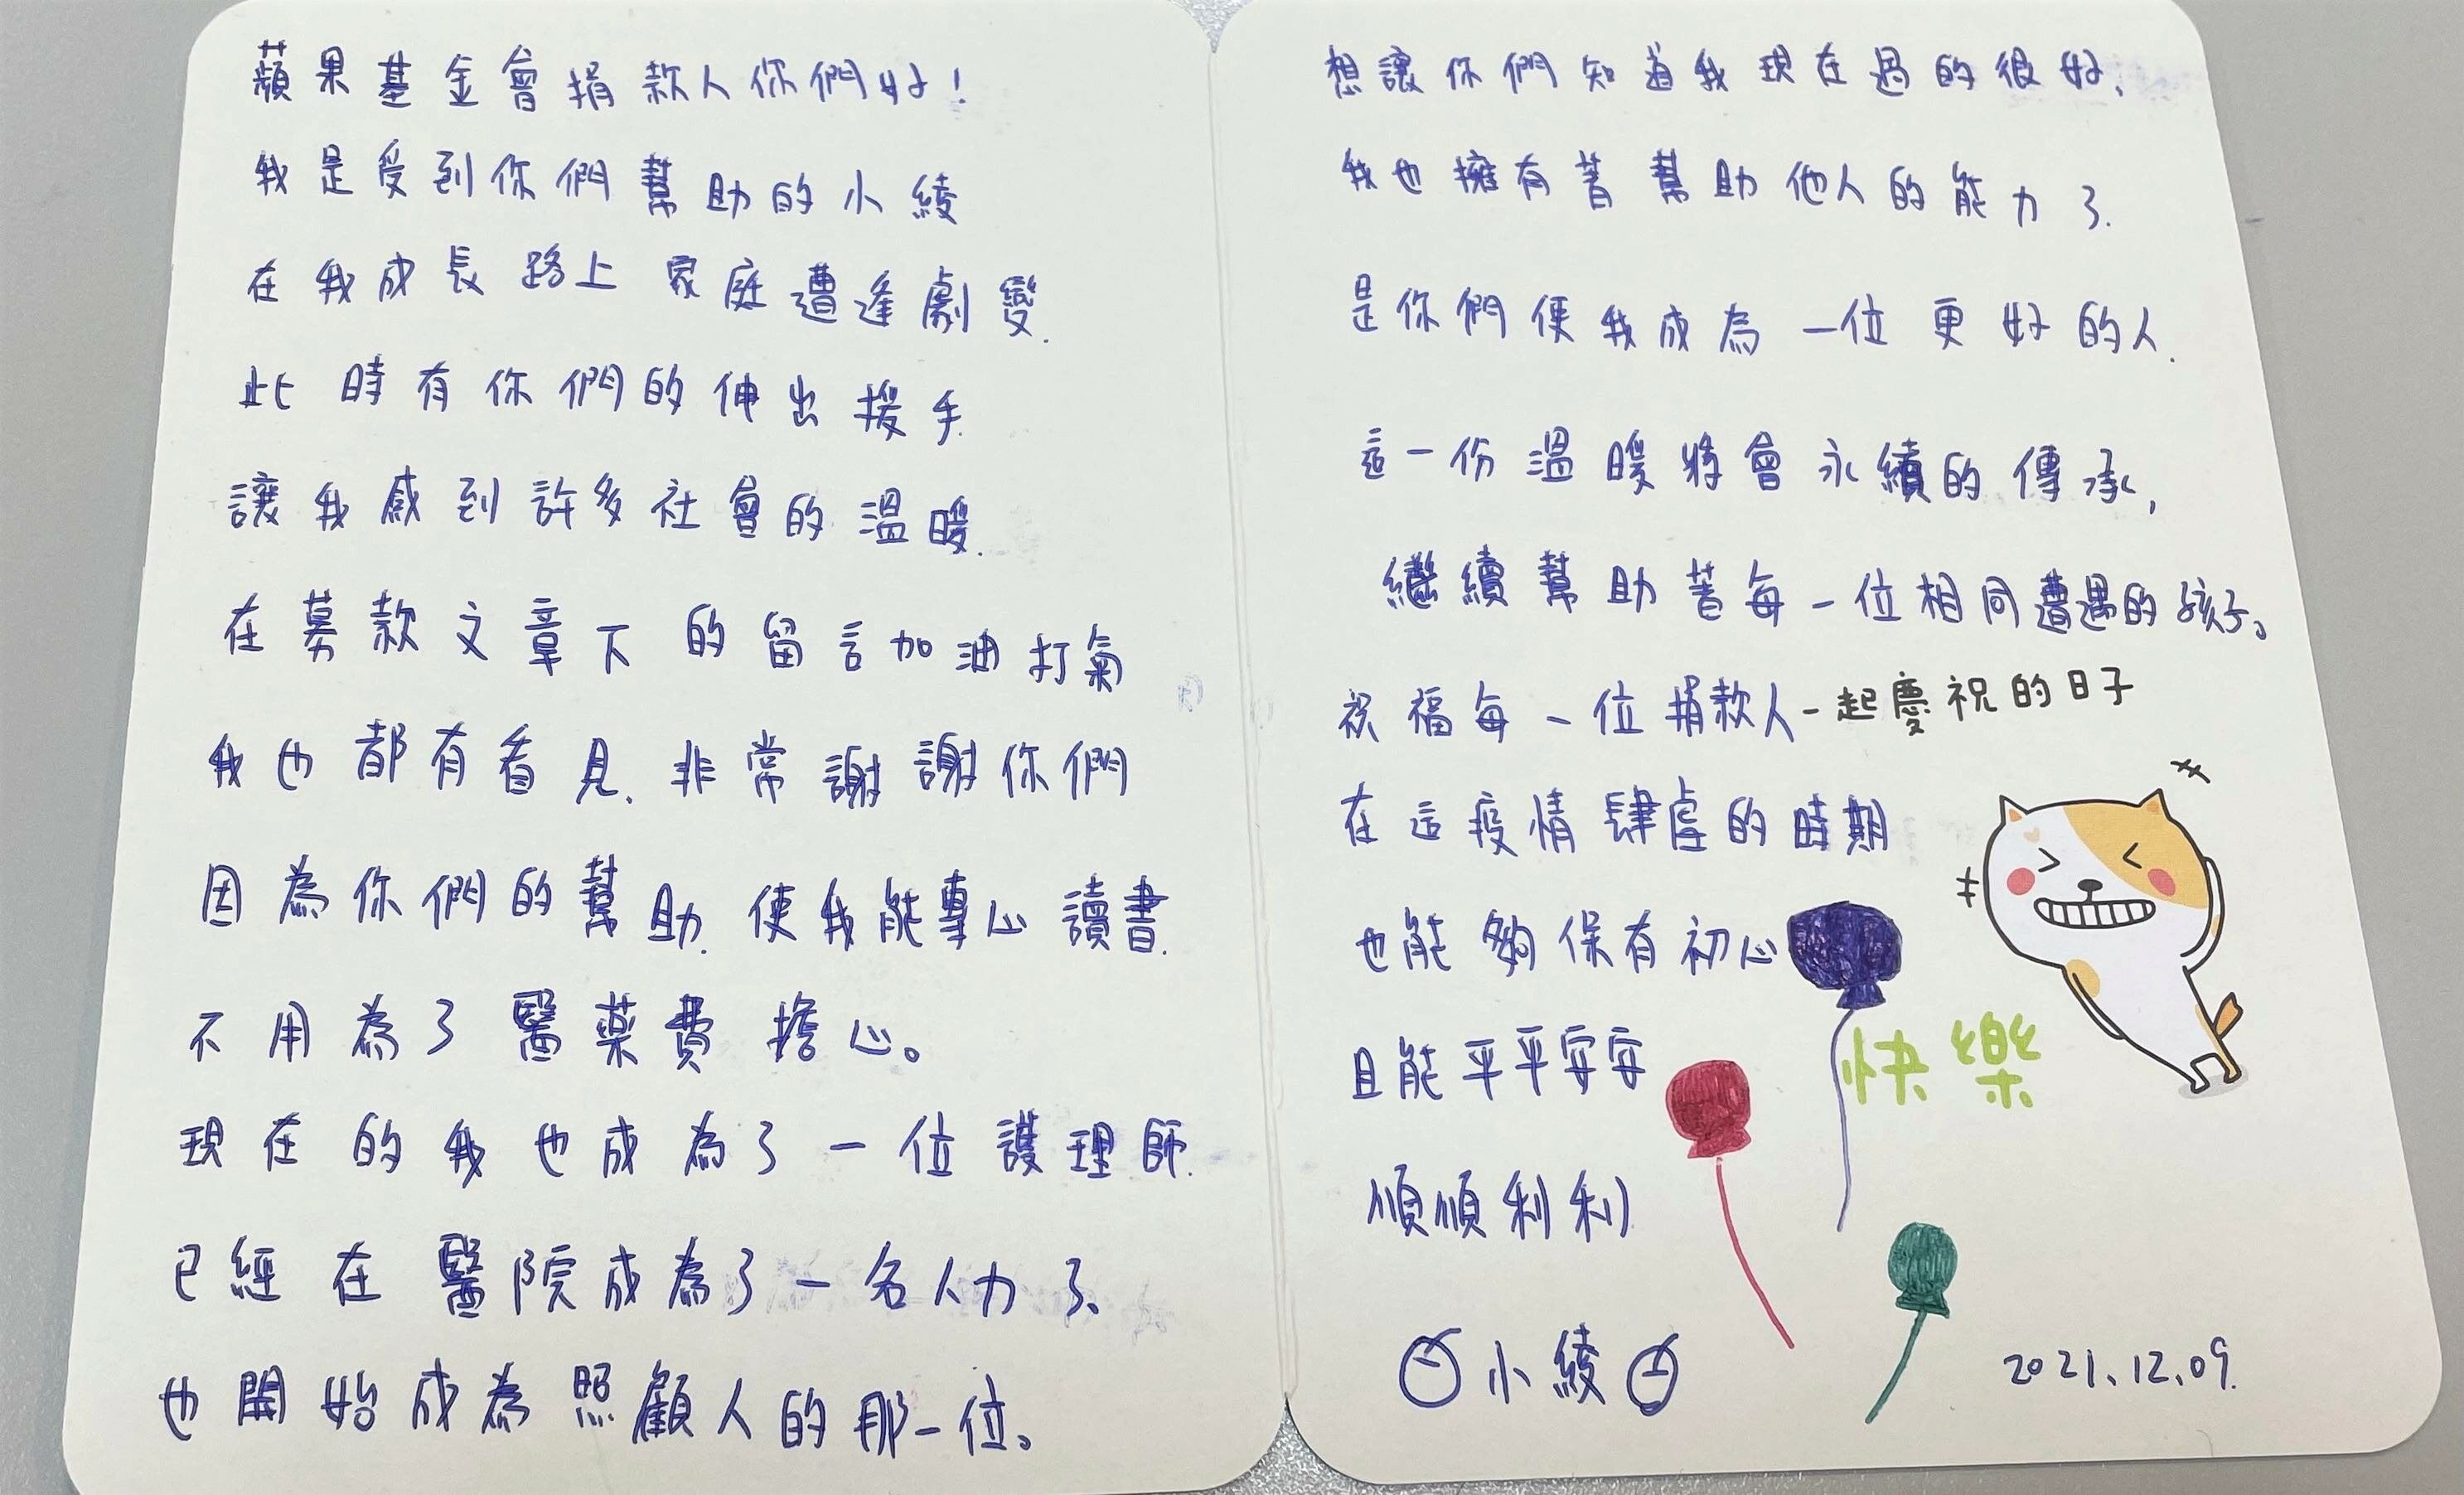 蘋果基金會捐款人你們好！
我是受到你們幫助的小綾
在我成長路上 家庭遭逢劇變.
此時有你們的伸出援手.
讓我感到許多社會的溫暖.
在募款文章下的留言加油打氣
我也都有看見、非常謝謝你們
因為你們的幫助. 使我能專心讀書.
不用為了醫藥費擔心。
現在的我也成為了一位護理師.
已經在醫院成為了一名人力了、
也開始成為照顧人的那一位。
想讓你們知道我現在過的很好、
我也擁有著幫助他人的能力了.
是你們使我成為一位更好的人.
這一份溫暖將會永續的傳承,
繼續幫助著每一位相同遭遇的孩子。
祝福每一位捐款人一起慶祝的日子
在這疫情肆虐的時期
也能夠保有初心
且能平平安安
快樂
順順利利
小綾
2021.12.09.